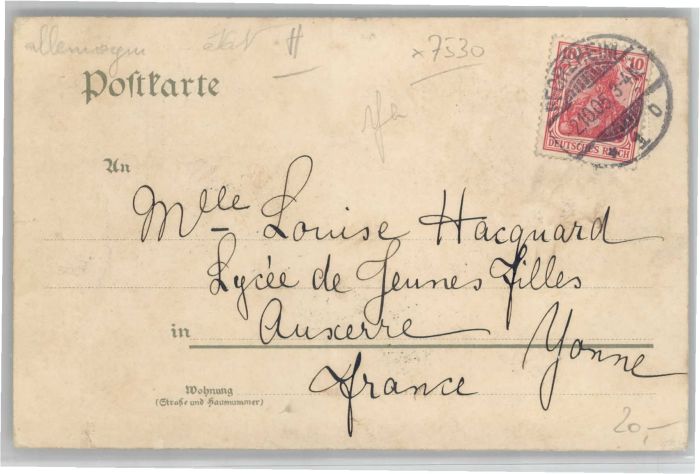 allemagne
x7530
Postkarte
10
2.10.05. 3-4N.
DEUTSCHES REICH
An
Mlle Louise Hacquard
Lycée de Jeunes Filles
in Auxerre Yonne
France
Wohnung
(Straße und Hausnummer)
20,-